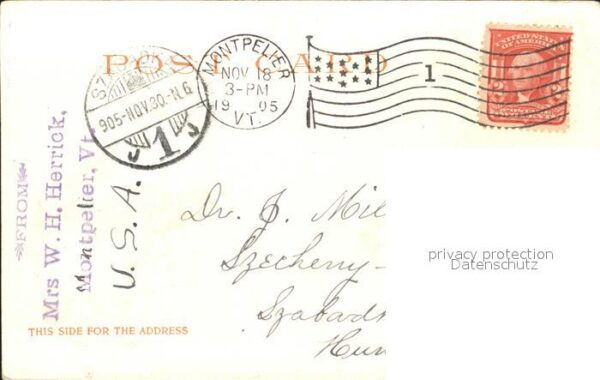 POST CARD
MONTPELIER
NOV 18
3-PM
19 05
VT.
1
UNITED STATES
OF AMERICA
905-NOV.30.-N.6
1
FROM
Mrs W. H. Herrick,
Montpelier, Vt.
U.S.A.
Dr. J. Mil
Szecheny-
Szabads
Hun
privacy protection
Datenschutz
THIS SIDE FOR THE ADDRESS